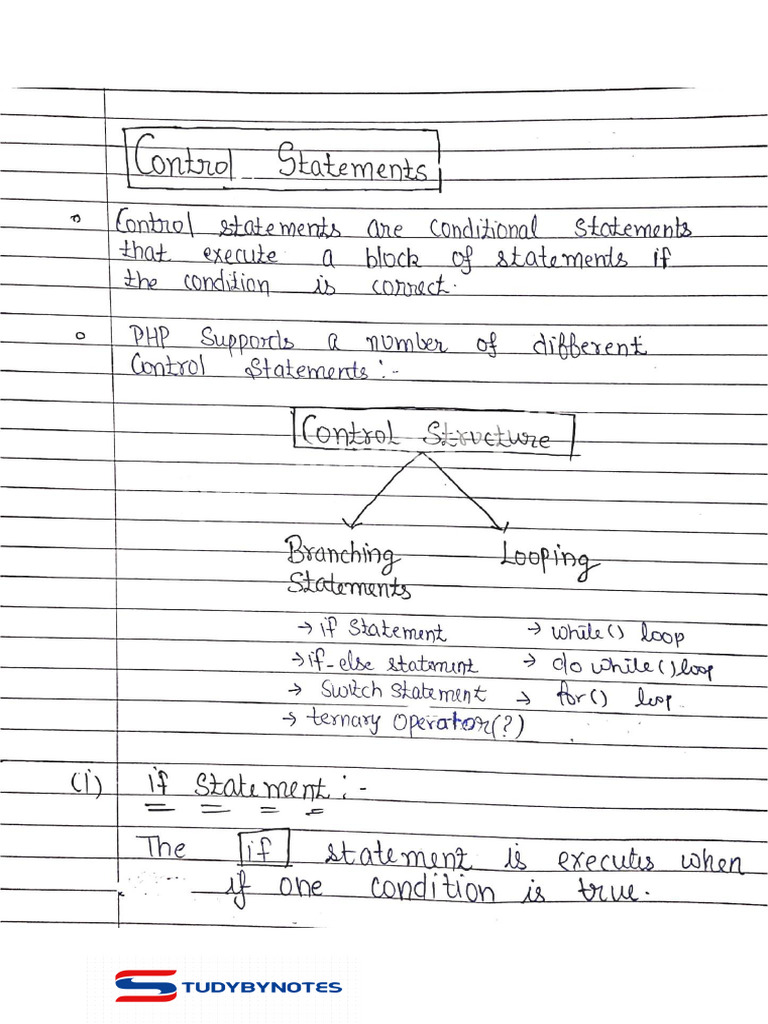 Control Statements
Control statements are conditional statements
that execute a block of statements if
the condition is correct.
PHP Supports a number of different
Control Statements:-
Control Structure
Branching Looping
Statements
→ if Statement → while() loop
→ if-else statment → do while() loop
→ Switch Statement → for() loop
→ ternary Operator(?)
(i) if Statement:-
The if statement is executes when
if one condition is true.
STUDYBYNOTES